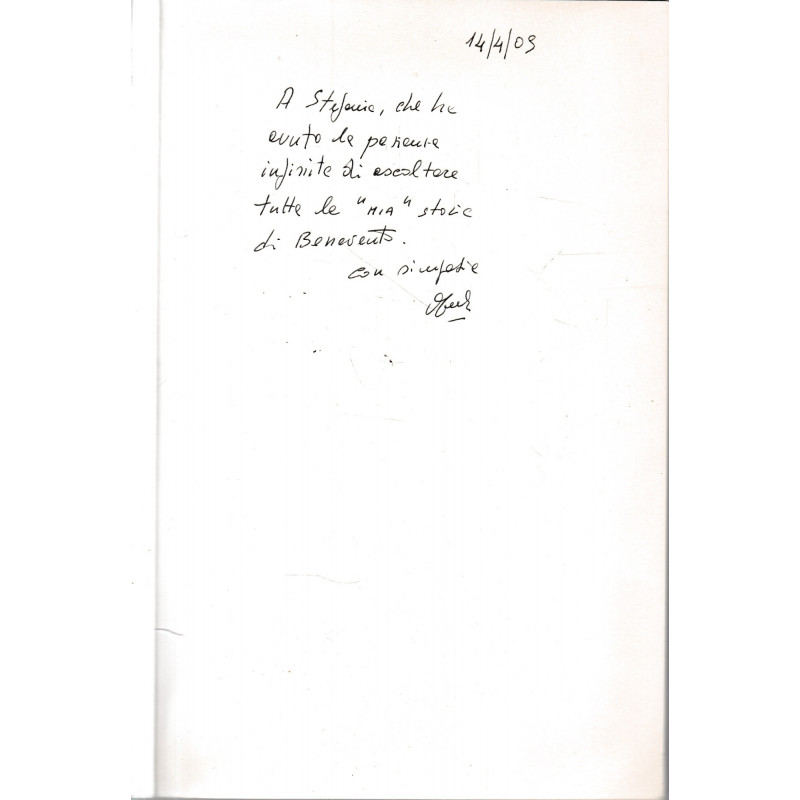 14/4/09
A Stefania, che ha
avuto la pazienza
infinita di ascoltare
tutta la "MIA" storia
di Benevento.
con simpatia